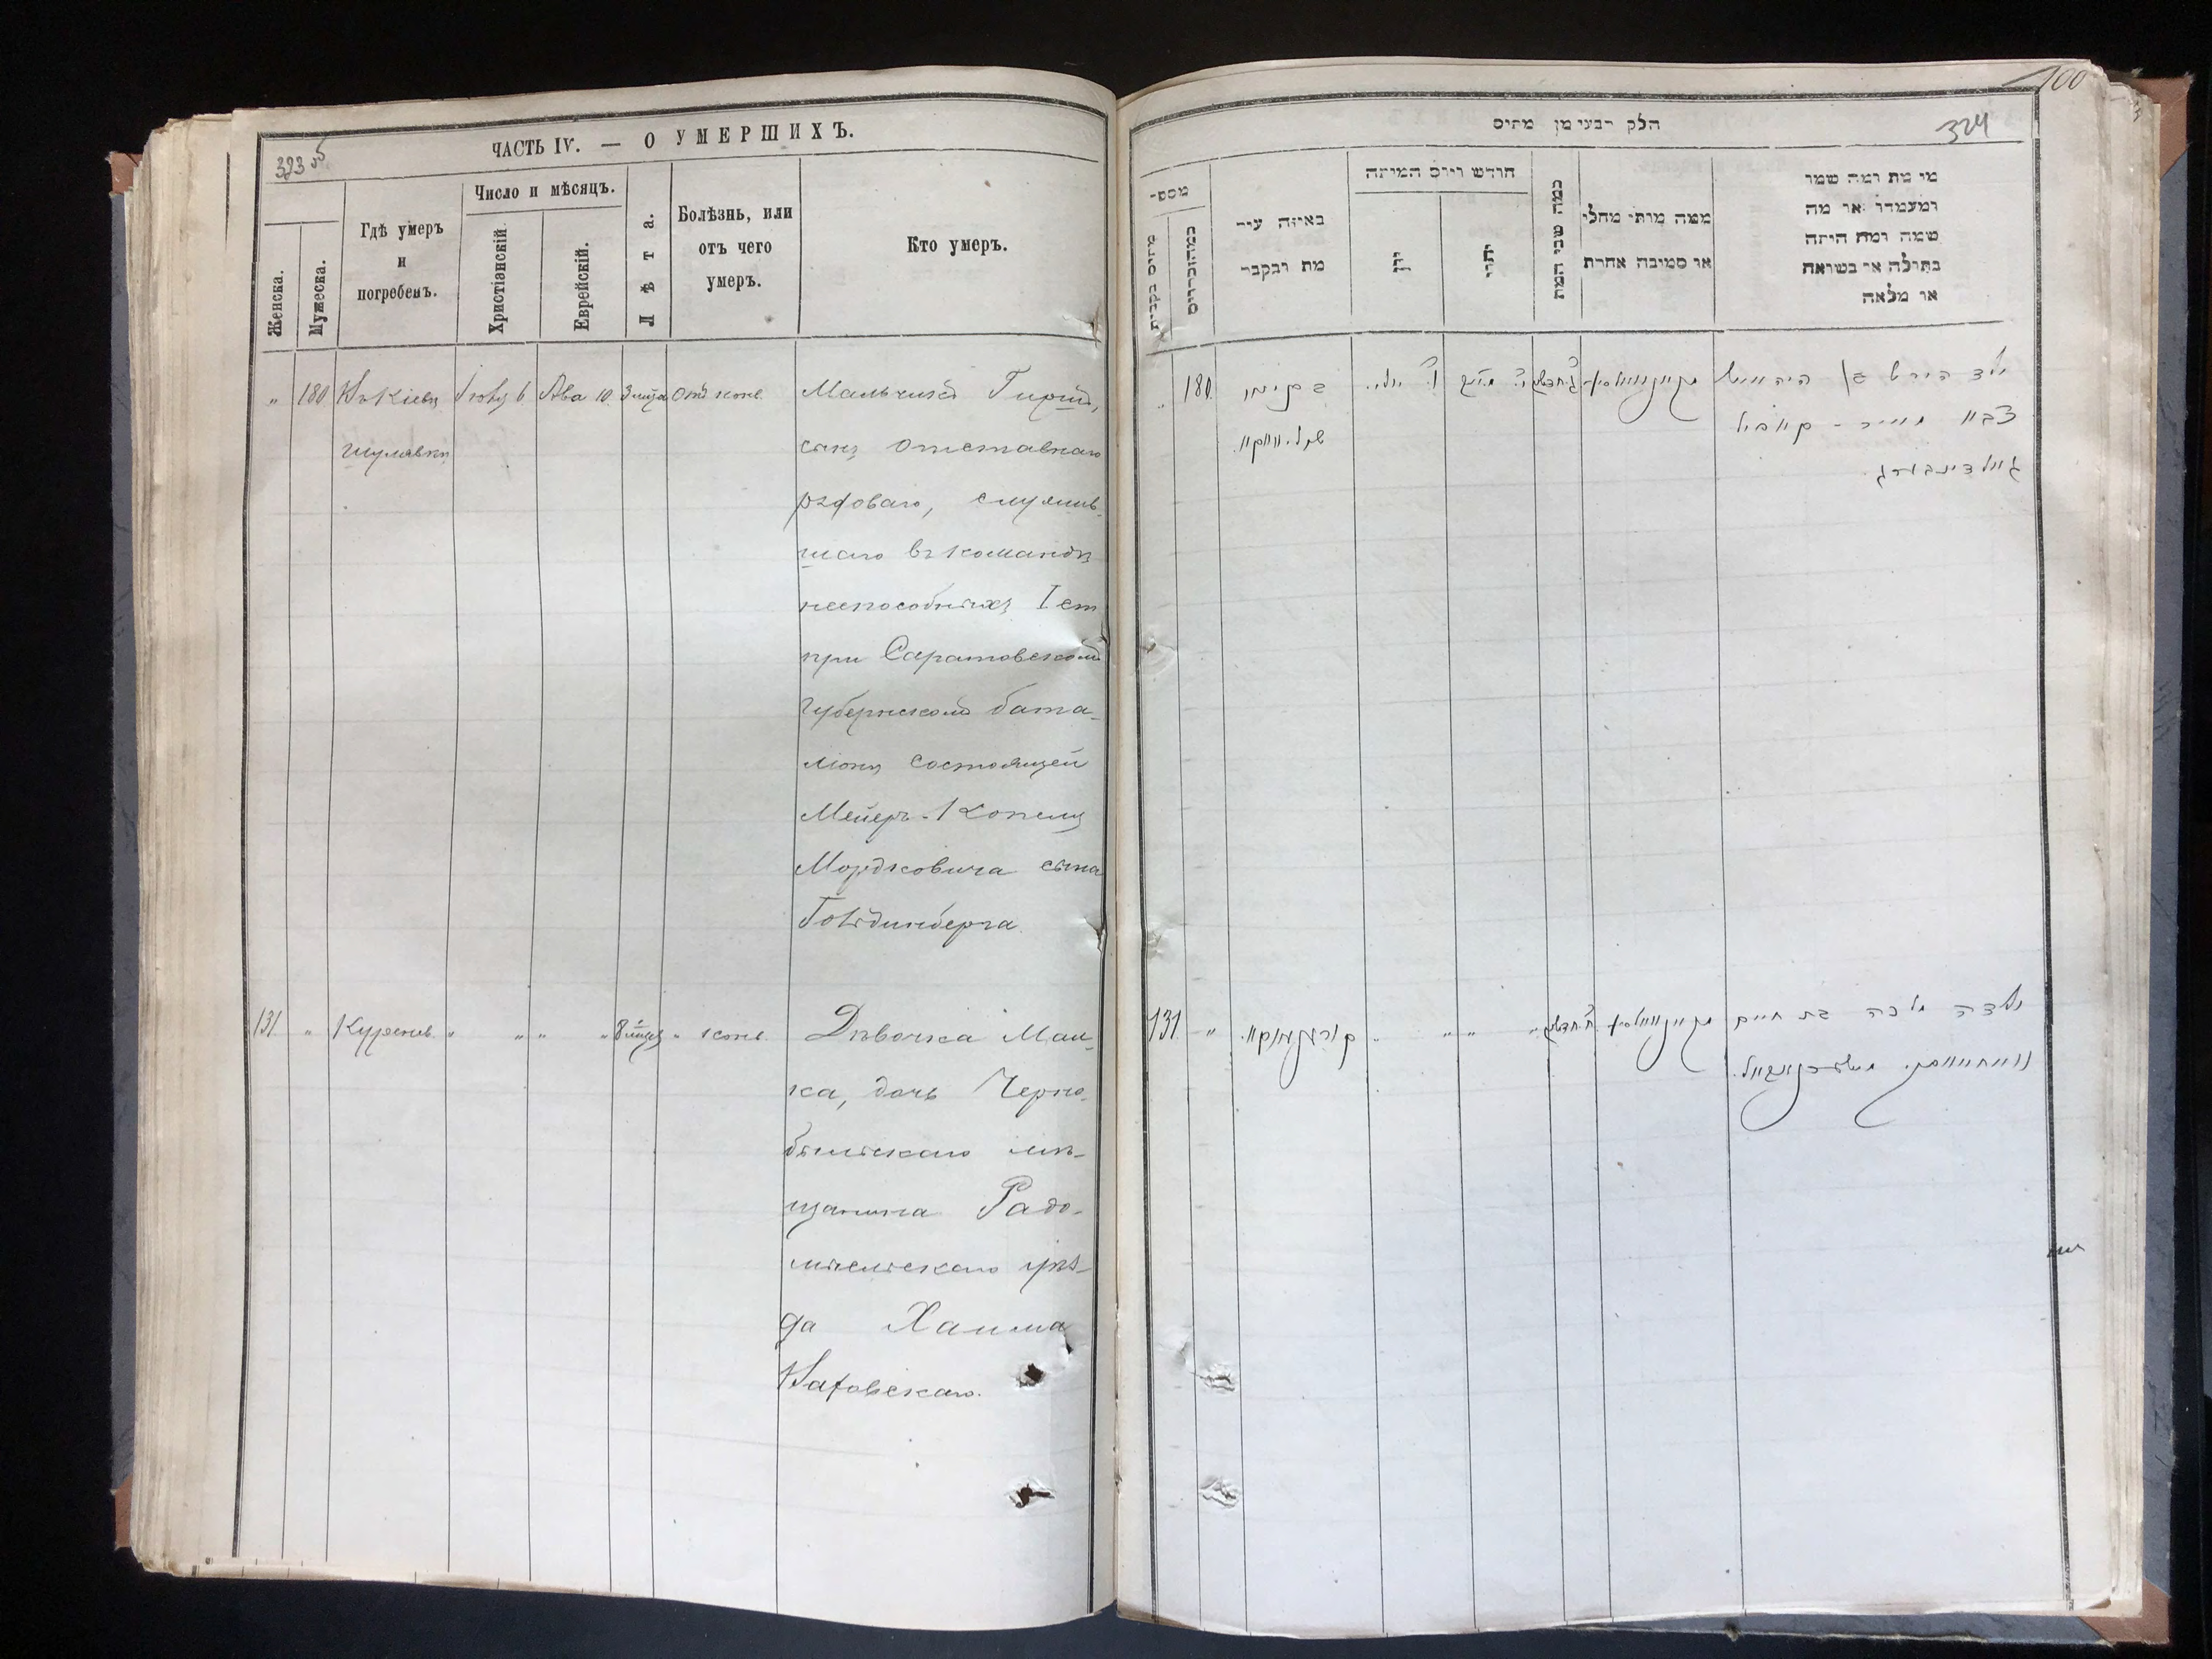 323 об
ЧАСТЬ IV. — О УМЕРШИХЪ.
Женска.
Мужеска.
Гдѣ умеръ
и
погребенъ.
Число и мѣсяцъ.
Христіанскій.
Еврейскій.
Лѣта.
Болѣзнь, или
отъ чего
умеръ.
Кто умеръ.
" 180 Въ Кіевѣ Іюля 6 Ава 10 3 мѣся Отъ конв. Мальчикъ Гиршъ,
шулявкѣ сынъ отставнаго
рядоваго, служив-
шаго въ командѣ
неспособныхъ I ст
при Саратовскомъ
Губернскомъ бата-
ліонѣ состоящей
Мейеръ-Копеля
Мордковича сына
Гольдинберга.
131 " Куренев. " " " " 8 мѣся " конв. Дѣвочка Мал-
ка, дочь Черно-
быльскаго мѣ-
щанина Радо-
мысльскаго уѣз-
да Хаима
100
324
חלק רבעי מן מתים
מספ-
מתים נקבות
כמה זכרים
באיזה עיר
מת ונקבר
חודש ויום המיתה
יון
יהודי
כמה שני המת
ממה מותי מחלי
או מסיבה אחרת
מי מת ומה שמו
ומעמדו או מה
שמה ומה היתה
בתולה או נשואה
או מלאה
" 180
ילד הירש בן
מאיר - קאפיל
גאלדינבערג
131 "
ילדה מלכה בת חיים